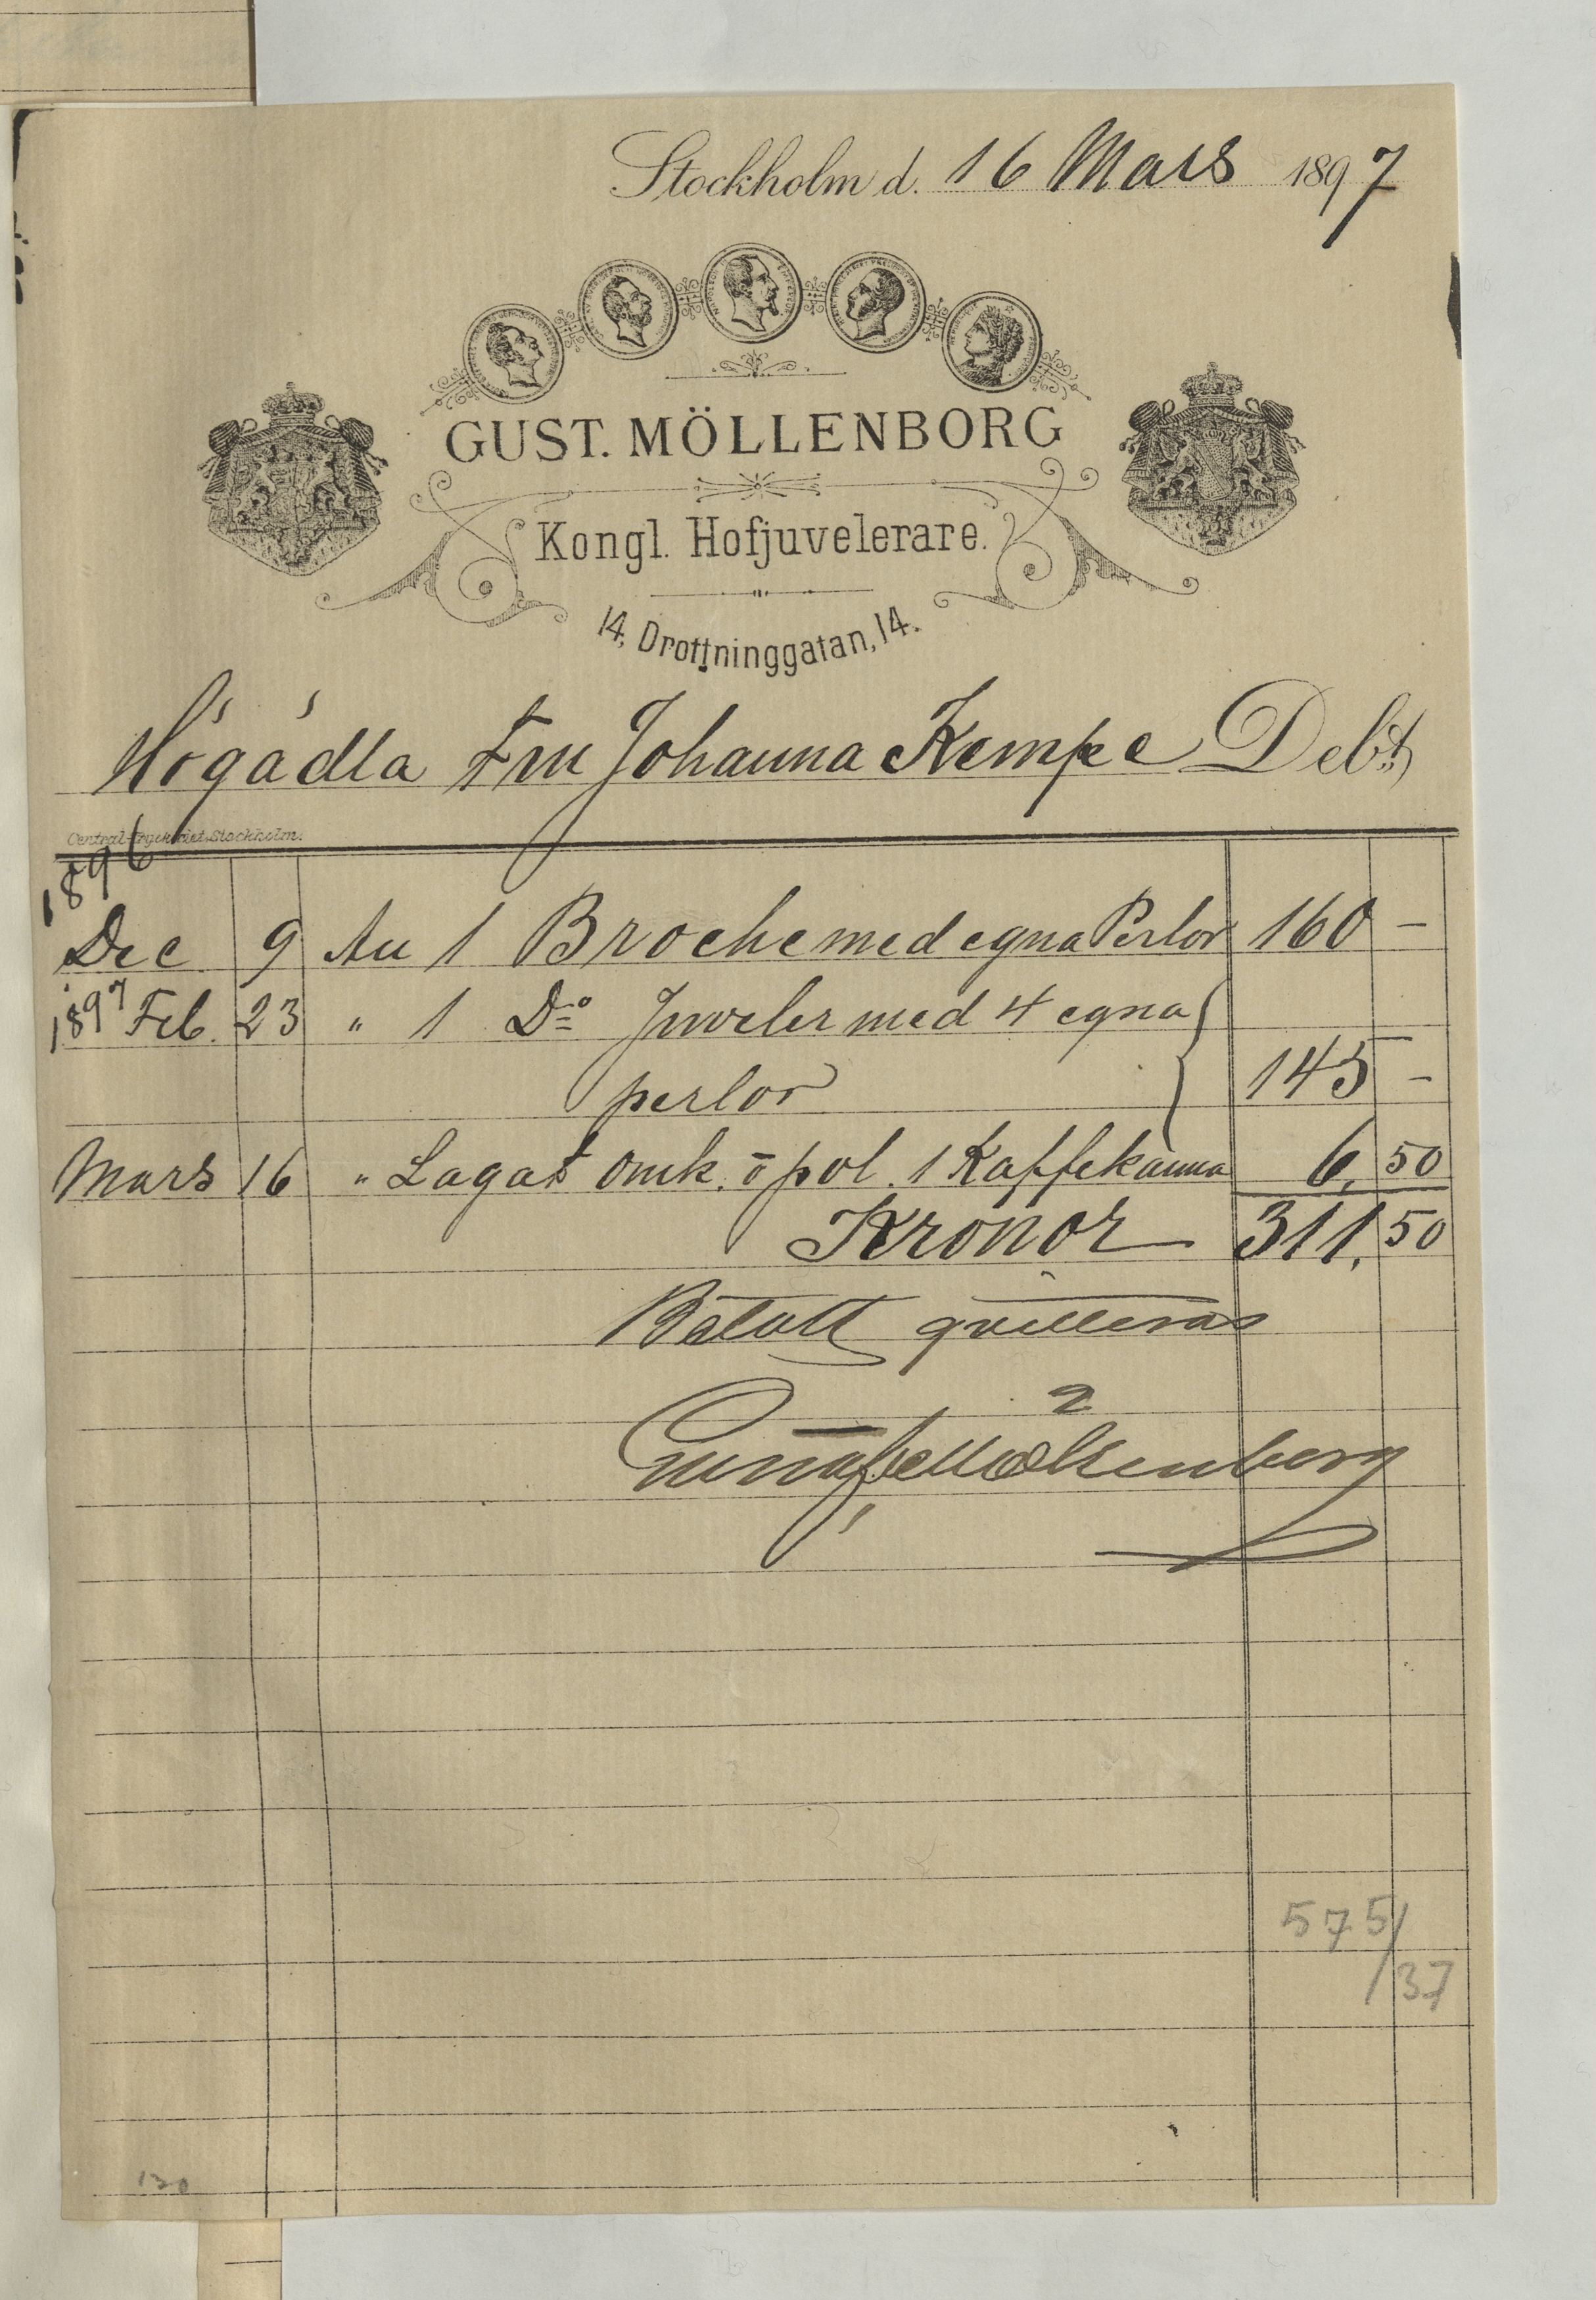 Stockholm d. 16 Mars 1897
GUST. MÖLLENBORG
Kongl. Hofjuvelerare.
14, Drottninggatan, 14.
Högädla Fru Johanna Kempe Debt
Central-Tryckeriet Stockholm.
1896
Dec 9 An 1 Broche med egna Perlor 160 -
1897 Feb. 23 " 1 Do Juveler med 4 egna
perlor 145 -
Mars 16 " Lagat omk. o pol. 1 Kaffekanna 6,50
Kronor 311,50
Betalt qvitteras
Möllenborg
575/
37
130